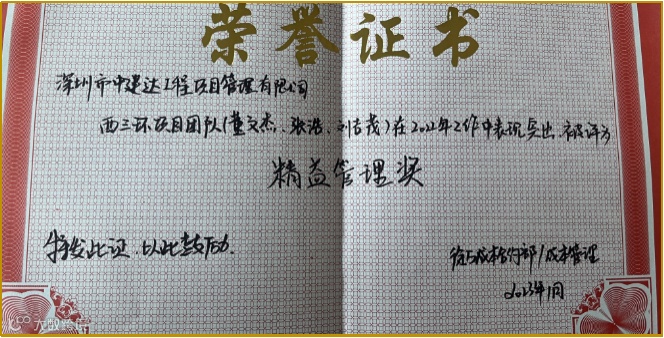 荣誉证书
深圳市中建达工程项目管理有限公司
西三环项目团队(董文杰、张浩、刘吉茂)在2022年工作中表现突出,被评为
精益管理奖
特发此证,以此鼓励.
成本合约部/成本管理
2023年1月